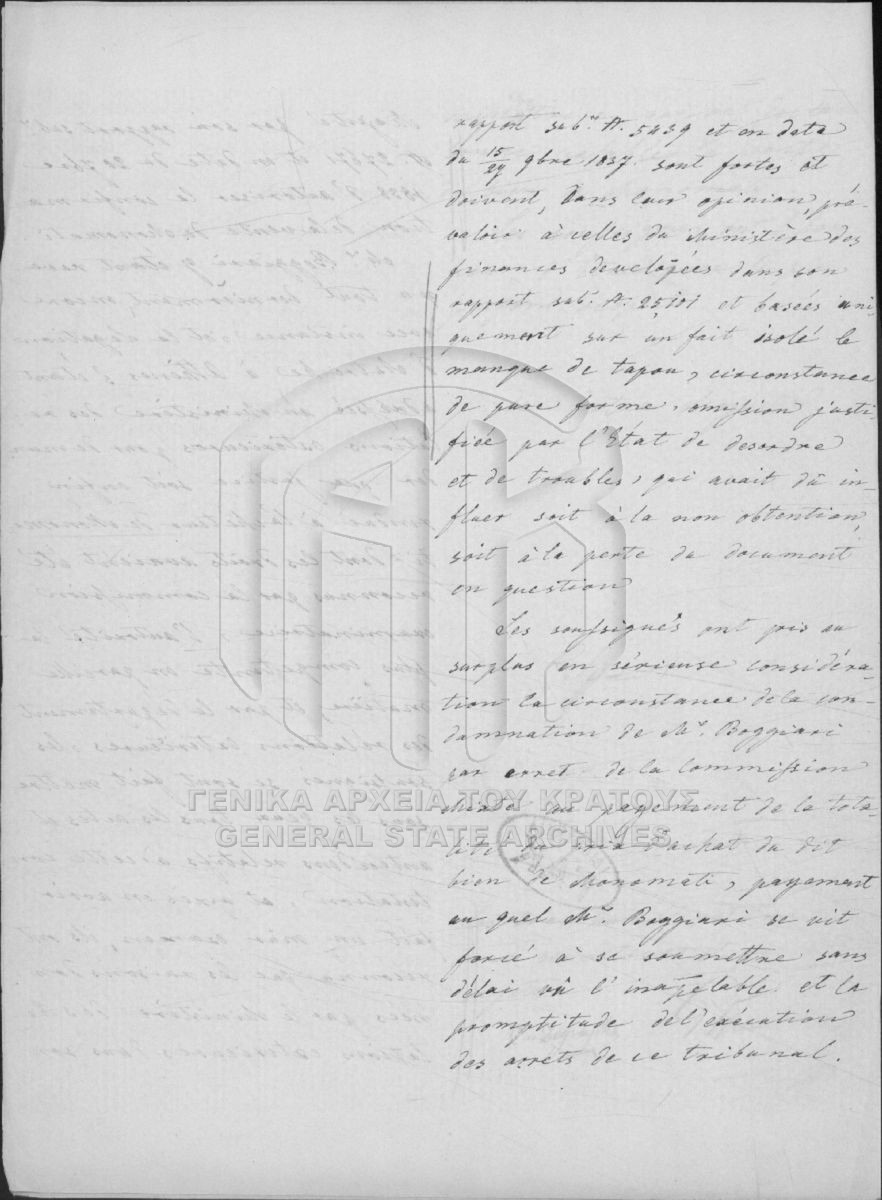 rapport sub. N. 5439 et en date
du 15/27 9bre 1837. sont fortes et
doivent, dans leur opinion, pré-
valoir à celles du Ministère des
finances developées dans son
rapport sub. N. 25,101 et basées uni-
quement sur un fait isolé le
manque de tapou, circonstance
de pure forme, omission justi-
fiée par l'État de desordre
et de troubles, qui avait dû in-
fluer soit à la non obtention,
soit à la perte du document
en question
Les soussignés ont pris au
surplus en sérieuse considéra-
tion la circonstance de la con-
damnation de Mr. Boggiari
par arret de la Commission
Mixte au payement de la tota-
lité du prix d'achat du dit
bien de Monomati, payement
au quel Mr. Boggiari se vit
forcé à se soumettre sans
délai vû l'inapelable et la
promptitude de l'exécution
des arrets de ce tribunal.
ΓΕΝΙΚΑ ΑΡΧΕΙΑ ΤΟΥ ΚΡΑΤΟΥΣ
GENERAL STATE ARCHIVES